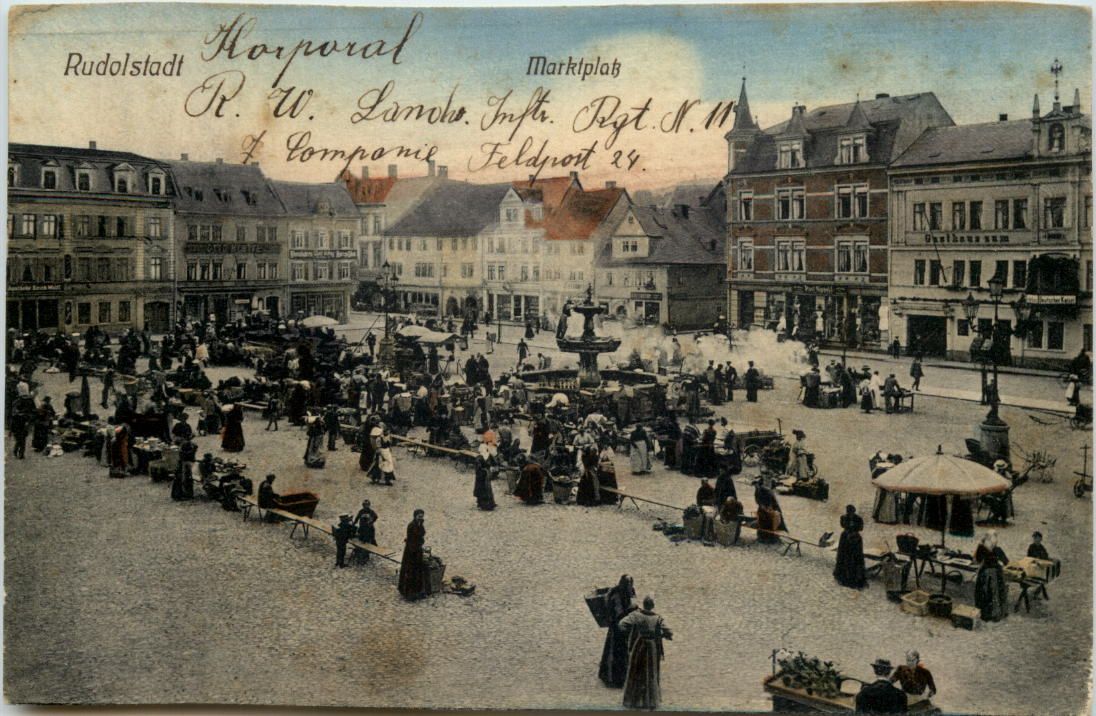 Rudolstadt
Marktplatz
Korporal
R. W. Landw. Inftr. Rgt. N. 11
7 Companie Feldpost 24.
Gasthaus zum
Deutscher Kaiser